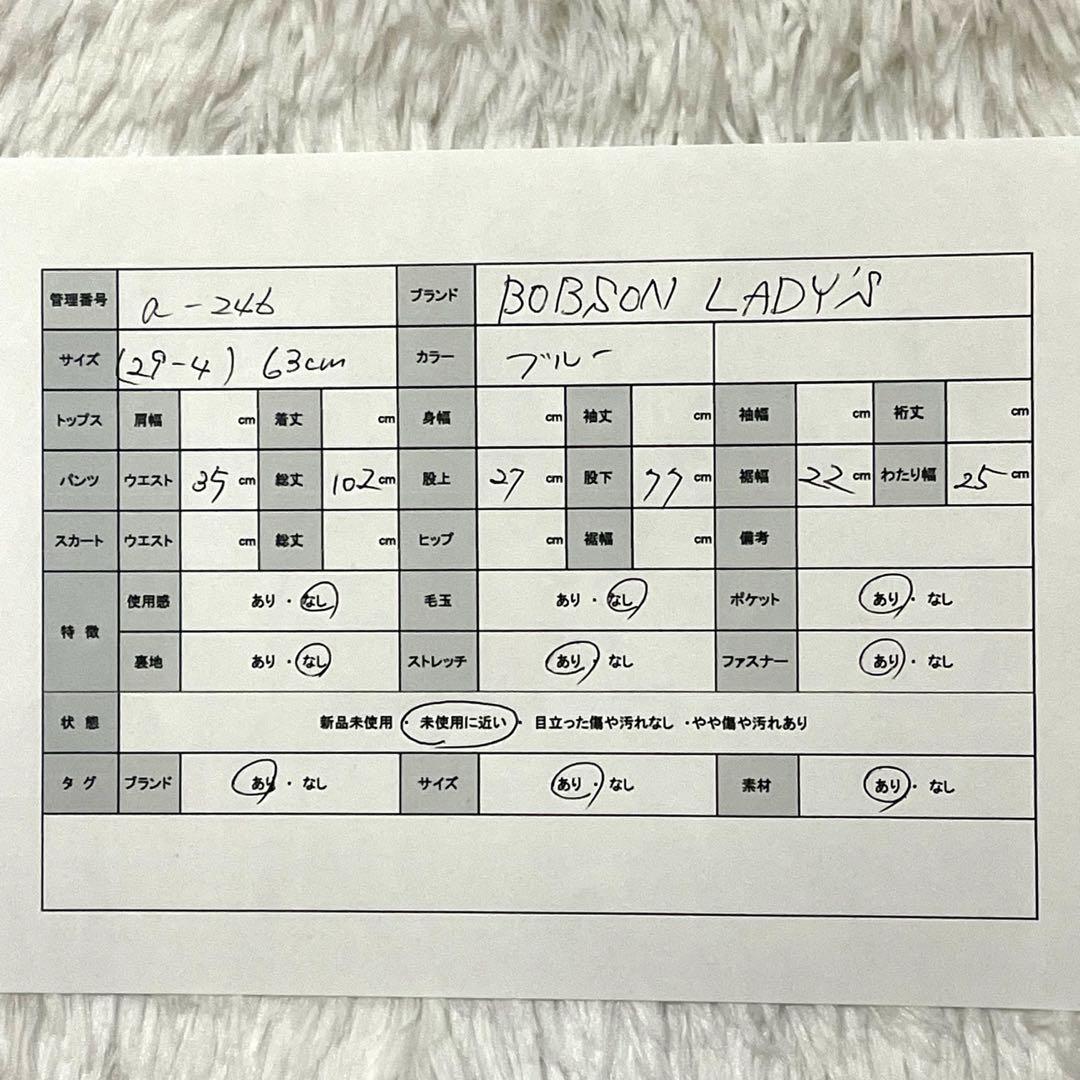 管理番号 a-246 ブランド BOBSON LADY'S
サイズ (29-4) 63cm カラー ブルー
トップス 肩幅 cm 着丈 cm 身幅 cm 袖丈 cm 袖幅 cm 裄丈 cm
パンツ ウエスト 35 cm 総丈 102 cm 股上 27 cm 股下 77 cm 裾幅 22 cm わたり幅 25 cm
スカート ウエスト cm 総丈 cm ヒップ cm 裾幅 cm 備考
特徴 使用感 あり・なし 毛玉 あり・なし ポケット あり・なし
裏地 あり・なし ストレッチ あり・なし ファスナー あり・なし
状態 新品未使用・未使用に近い・目立った傷や汚れなし・やや傷や汚れあり
タグ ブランド あり・なし サイズ あり・なし 素材 あり・なし